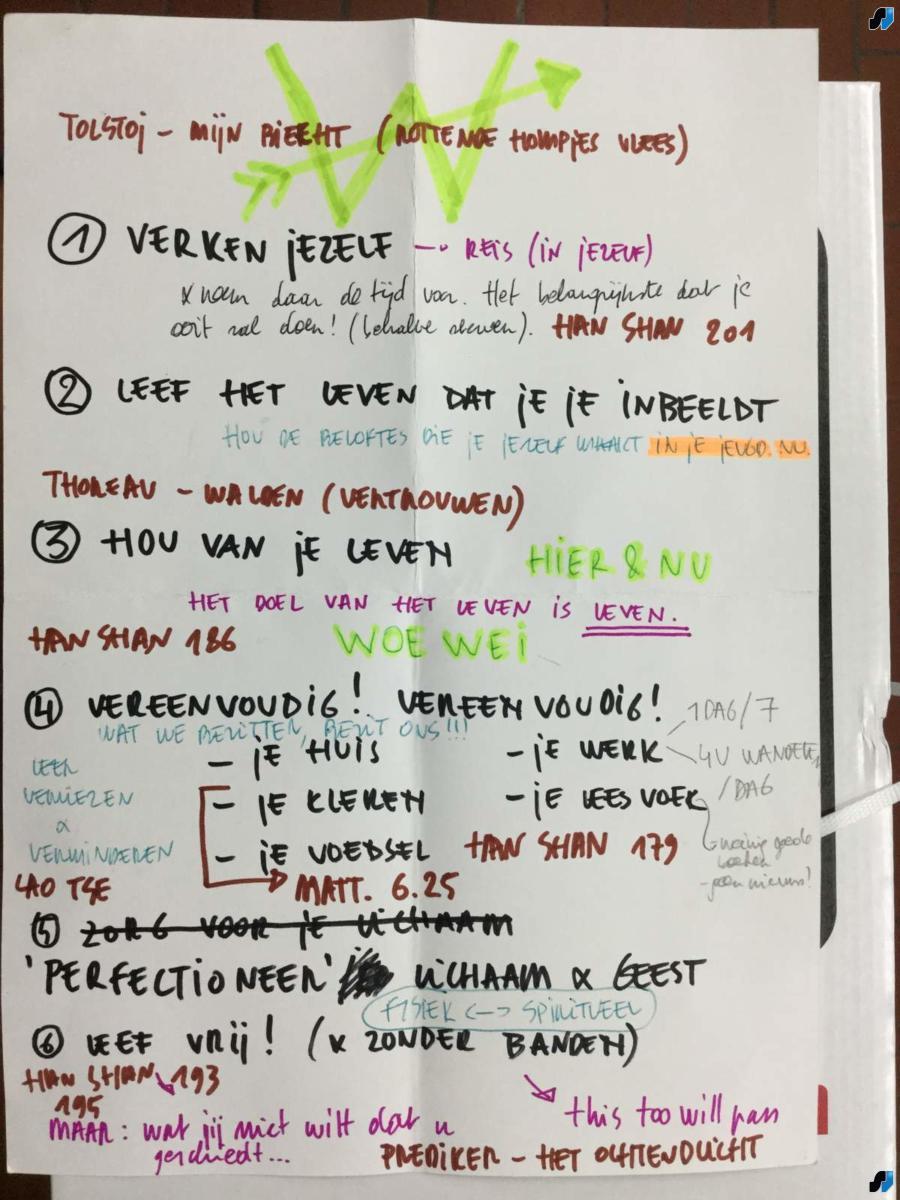 W
TOLSTOJ - MIJN BIECHT (ROTTENDE HOMPJES VLEES)
1 VERKEN JEZELF → REIS (IN JEZELF)
& neem daar de tijd voor. Het belangrijkste dat je
ooit zal doen! (behalve sterven). HAN SHAN 201
2 LEEF HET LEVEN DAT JE JE INBEELDT
HOU DE BELOFTES DIE JE JEZELF MAAKT IN JE JEUGD. NU.
THOREAU - WALDEN (VERTROUWEN)
3 HOU VAN JE LEVEN HIER & NU
HET DOEL VAN HET LEVEN IS LEVEN.
HAN SHAN 186 WOE WEI
4 VEREENVOUDIG! VEREENVOUDIG!
WAT WE BEZITTEN, BEZIT ONS!!!
- JE HUIS - JE WERK 1 DAG/7
4U WANDELEN
/DAG
LEER
VERLIEZEN
&
VERMINDEREN
- JE KLEREN - JE LEESVOER
- JE VOEDSEL HAN SHAN 179
- weinig goede
boeken
- geen nieuws!
LAO TSE MATT. 6.25
5 ZORG VOOR JE LICHAAM
'PERFECTIONEER' LICHAAM & GEEST
FYSIEK <--> SPIRITUEEL
6 LEEF VRIJ! (& ZONDER BANDEN)
HAN SHAN 193
195
MAAR: wat jij niet wilt dat u
geschiedt...
this too will pass
PREDIKER - HET OCHTENDLICHT